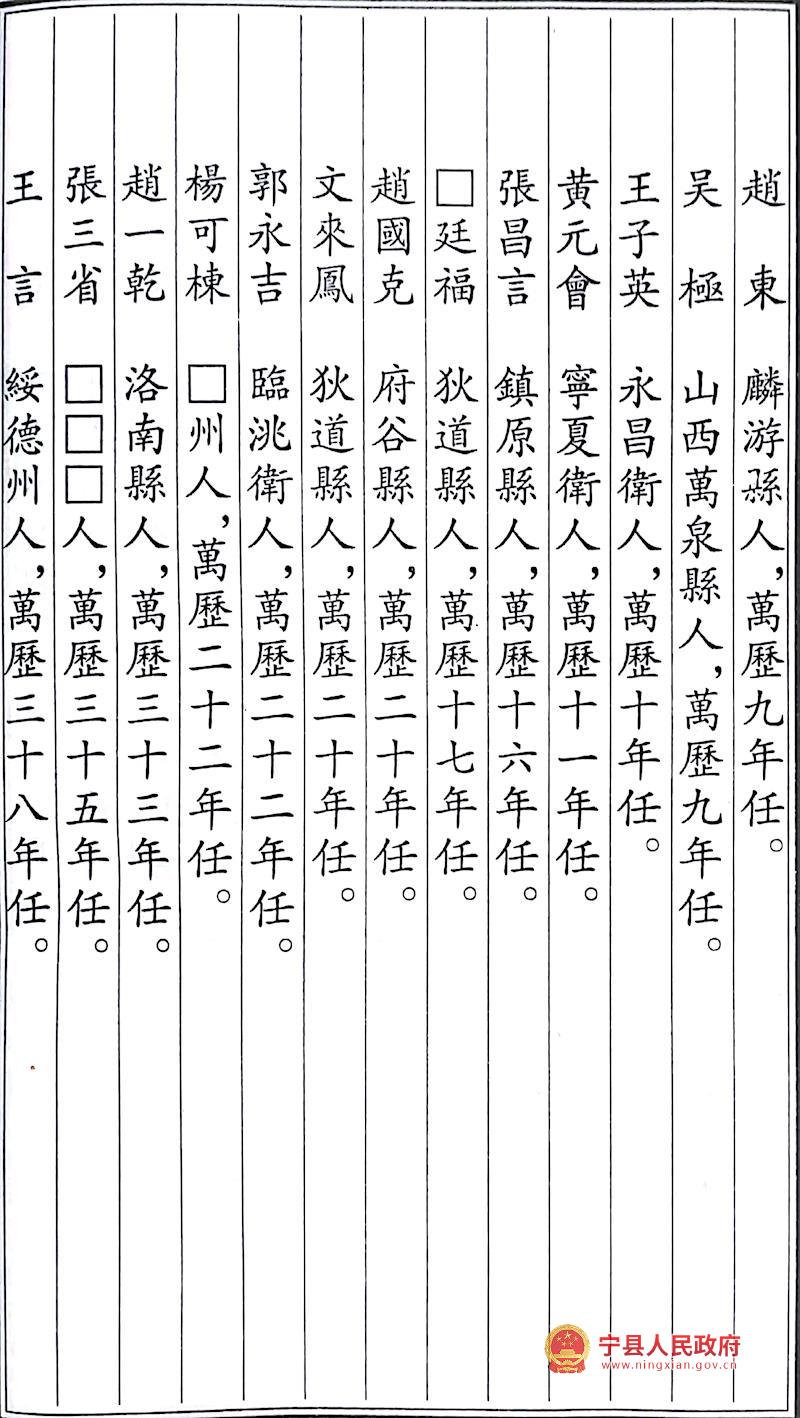 趙　東　麟游縣人，萬歷九年任。
吴　極　山西萬泉縣人，萬歷九年任。
王子英　永昌衛人，萬歷十年任。
黄元會　寧夏衛人，萬歷十一年任。
張昌言　鎮原縣人，萬歷十六年任。
□廷福　狄道縣人，萬歷十七年任。
趙國克　府谷縣人，萬歷二十年任。
文來鳳　狄道縣人，萬歷二十年任。
郭永吉　臨洮衛人，萬歷二十二年任。
楊可棟　□州人，萬歷二十二年任。
趙一乾　洛南縣人，萬歷三十三年任。
張三省　□□□人，萬歷三十五年任。
王　言　綏德州人，萬歷三十八年任。
宁县人民政府
www.ningxian.gov.cn